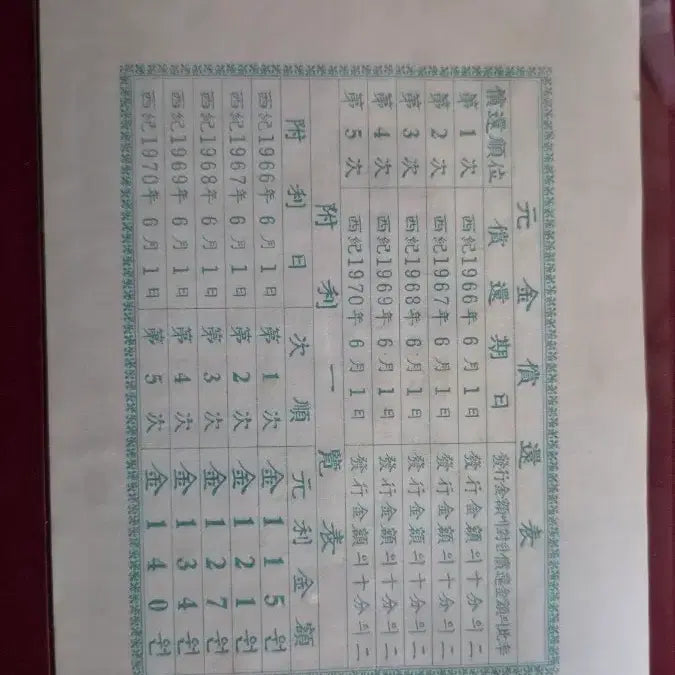 元金償還表
償還順位 償還期日 發行金額에對한償還金額의比率
第1次 西紀1966年6月1日 發行金額의十分의二
第2次 西紀1967年6月1日 發行金額의十分의二
第3次 西紀1968年6月1日 發行金額의十分의二
第4次 西紀1969年6月1日 發行金額의十分의二
第5次 西紀1970年6月1日 發行金額의十分의二
附利一覽表
附利日 次順 元利金額
西紀1966年6月1日 第1次 金115원
西紀1967年6月1日 第2次 金121원
西紀1968年6月1日 第3次 金127원
西紀1969年6月1日 第4次 金134원
西紀1970年6月1日 第5次 金140원